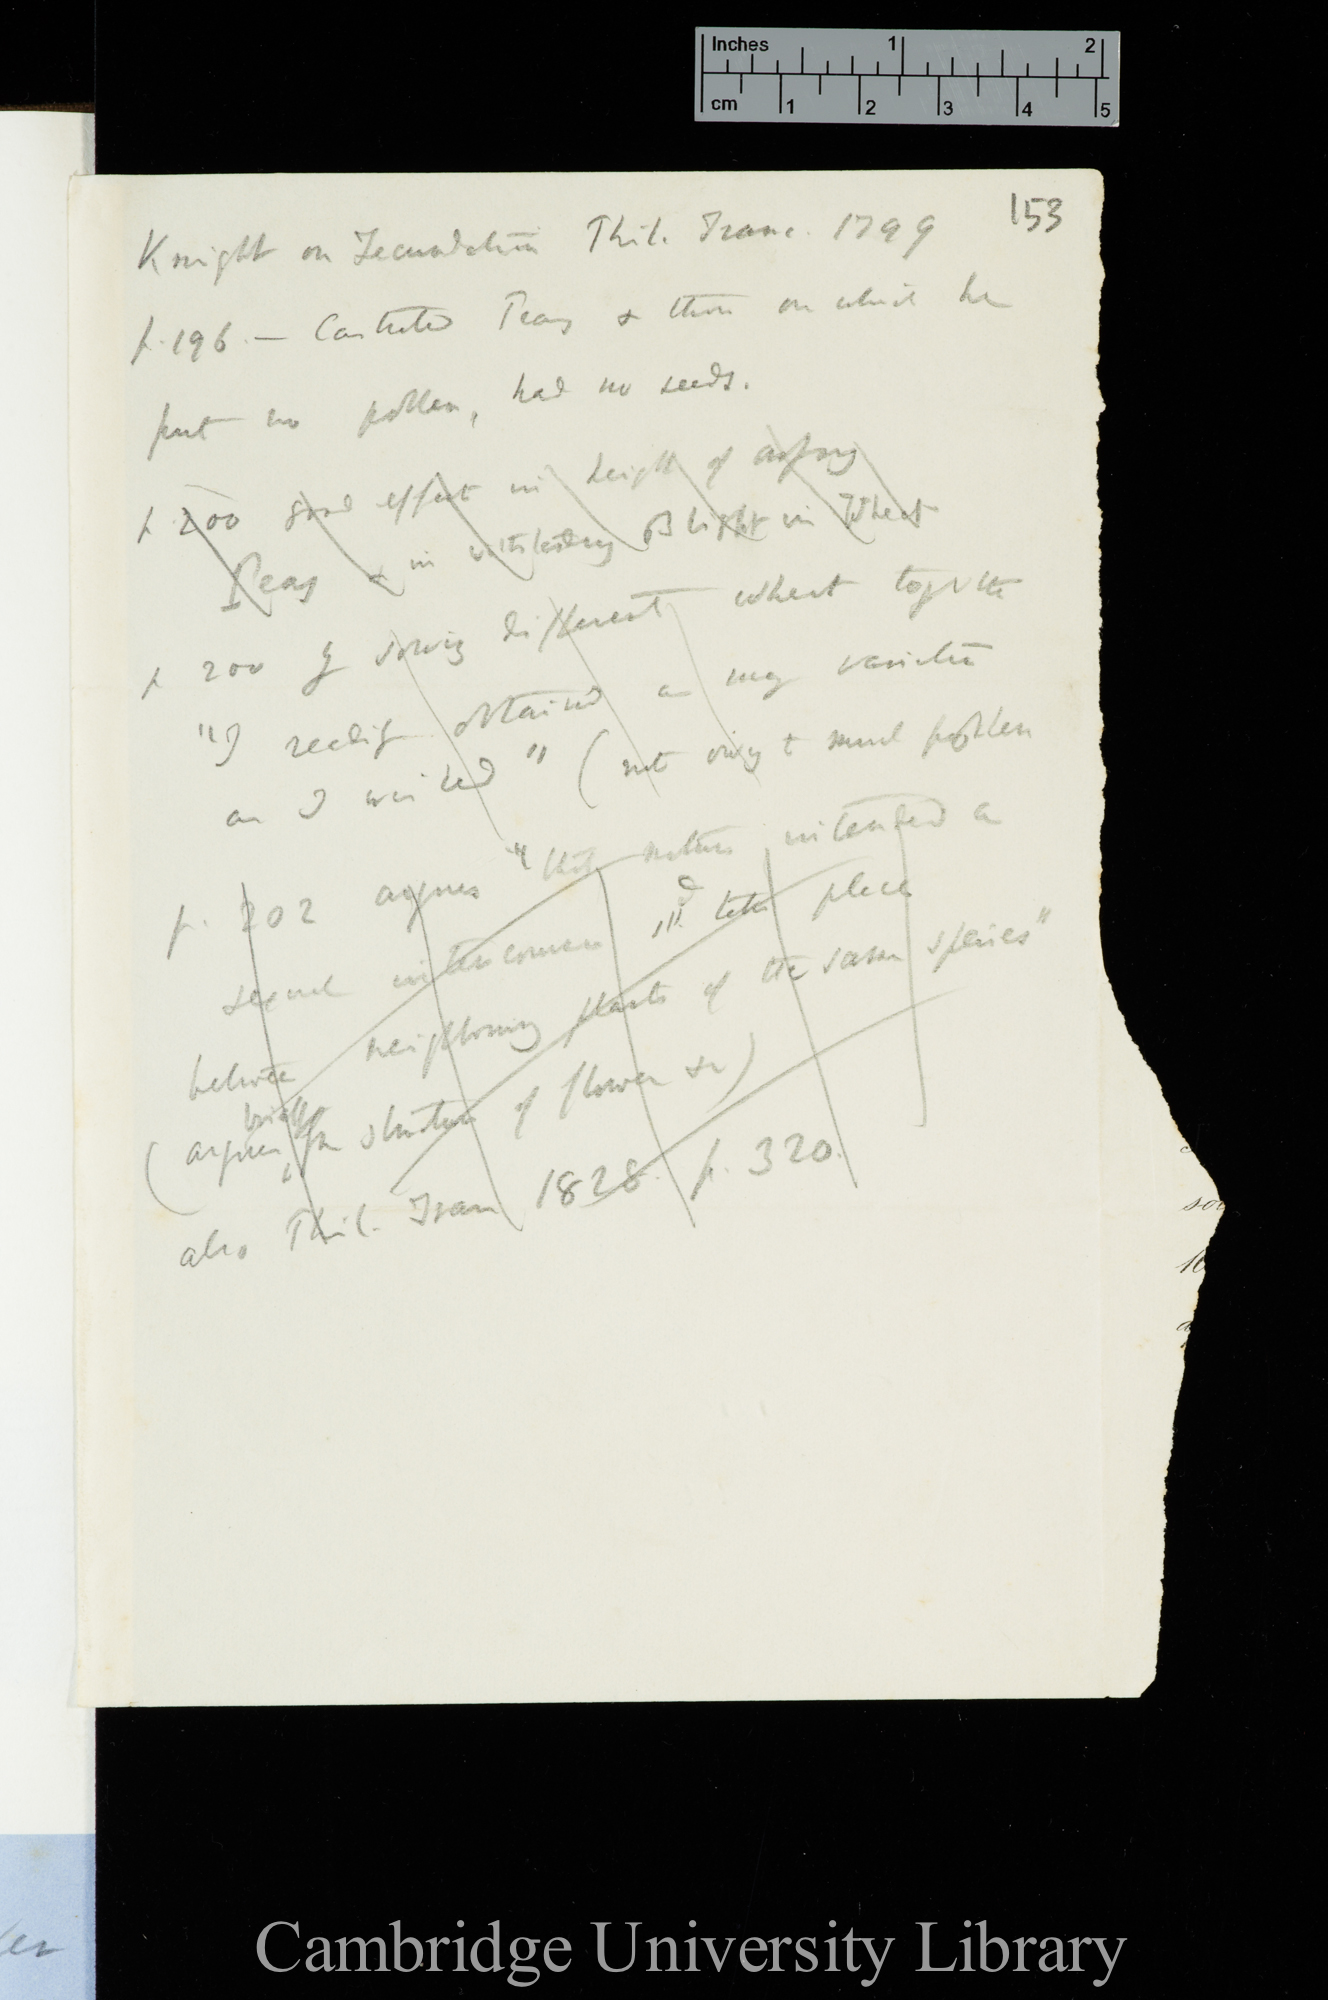 Inches 1 2
cm 1 2 3 4 5
153
Knight on Fecundation Phil. Trans. 1799
p. 196. — Castrated Peas & those on which he
put no pollen, had no seeds.
p 200 good effect in height of crossing
Peas & in withstanding Blight in Wheat
p 200 By sowing different wheat together
"I readily obtained as many varieties
as I wished" (not owing to much pollen
p. 202 argues "that nature intended a
sexual intercourse shd take place
between neighbouring plants of the same species"
briefly
(argues, fr structure of flower &c)
also Phil. Trans 1828. p. 320.
Cambridge University Library